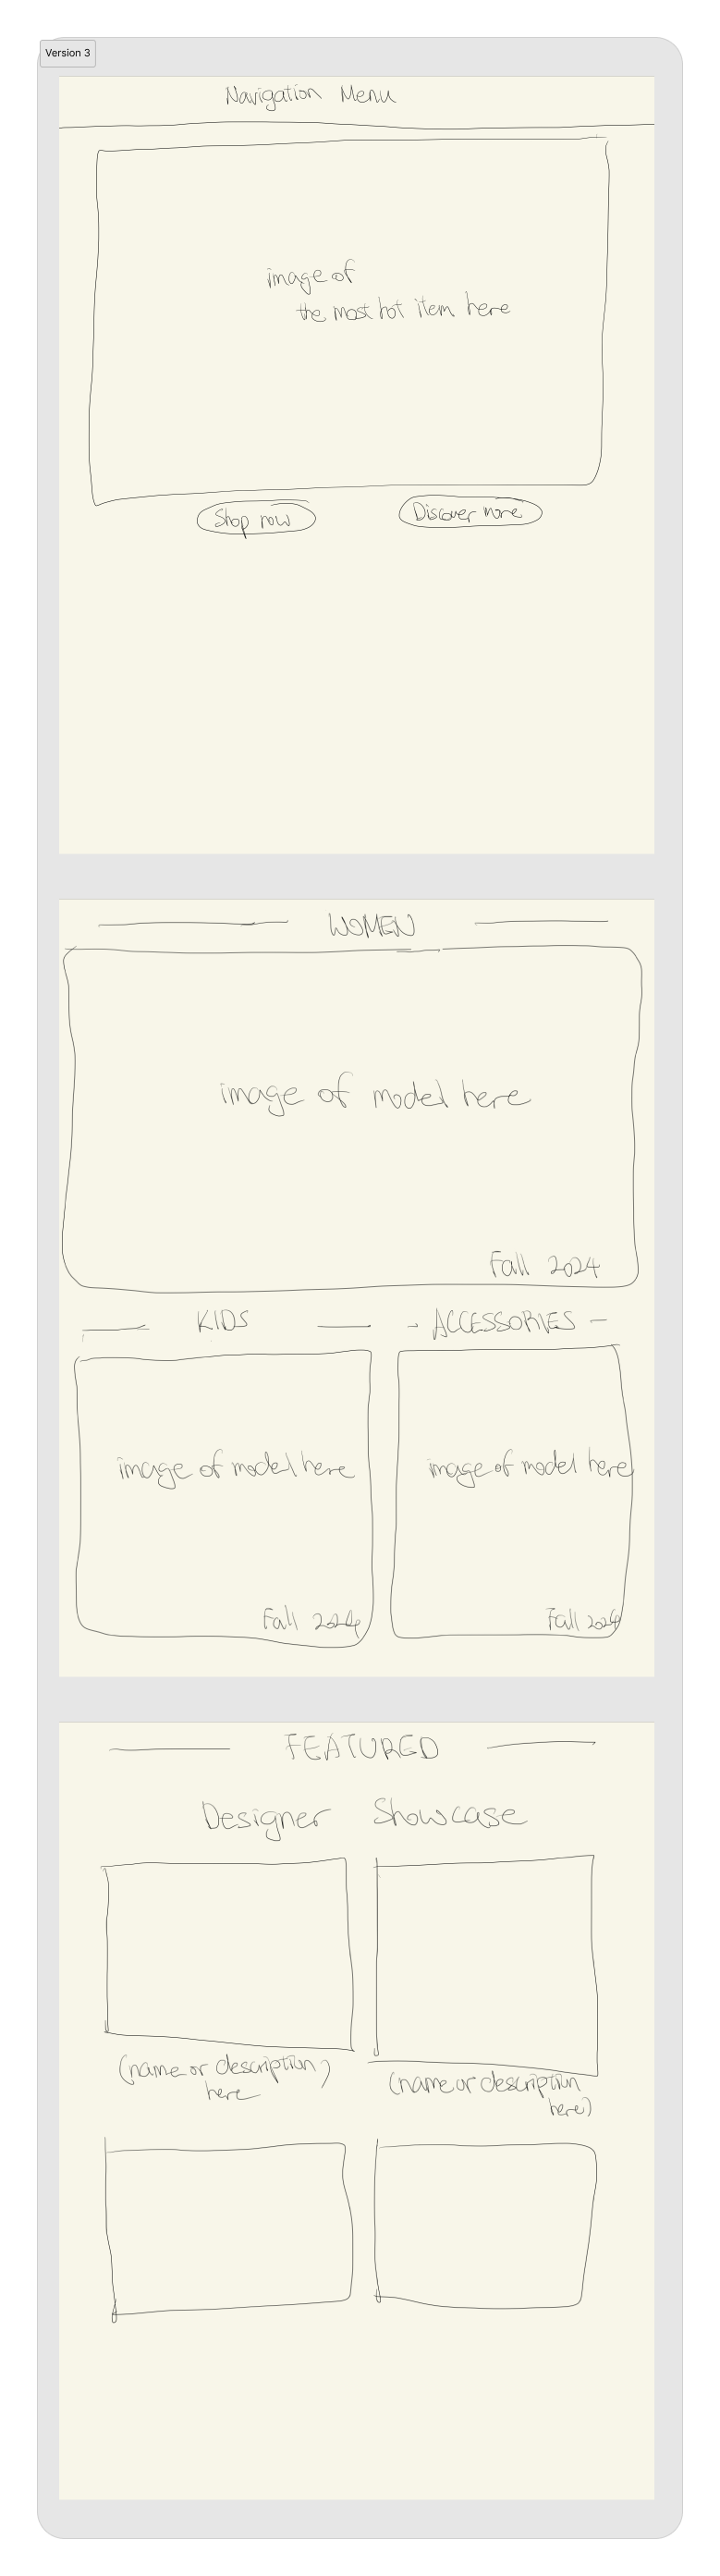 Version 3
Navigation Menu
image of
the most hot item here
Shop now
Discover more
WOMEN
image of model here
Fall 2024
KIDS
ACCESSORIES
image of model here
image of model here
Fall 2024
Fall 2024
FEATURED
Designer Showcase
(name or description)
here
(name or description
here)